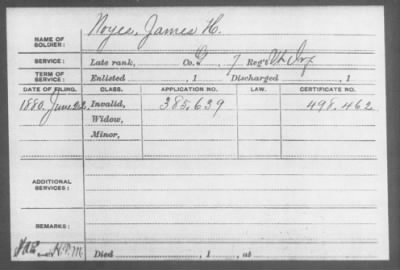 NAME OF SOLDIER: Noyes, James H.
SERVICE: Late rank, Co. G, 7 Reg't Vt. Inf
TERM OF SERVICE: Enlisted , 1 Discharged , 1
DATE OF FILING. CLASS. APPLICATION NO. LAW. CERTIFICATE NO.
1880. June 22 Invalid, 385,639 498.462
Widow,
Minor,
ADDITIONAL SERVICES:
REMARKS:
Died , 1 , at